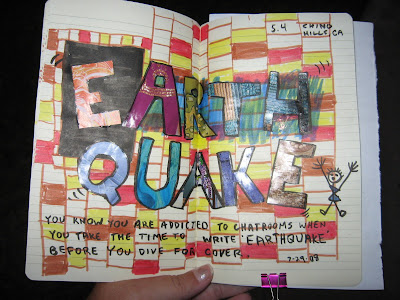 5.4 CHINO
HILLS, CA
EARTH
QUAKE
YOU KNOW YOU ARE ADDICTED TO CHATROOMS WHEN
YOU TAKE THE TIME TO WRITE 'EARTHQUAKE'
BEFORE YOU DIVE FOR COVER.
7-29-08